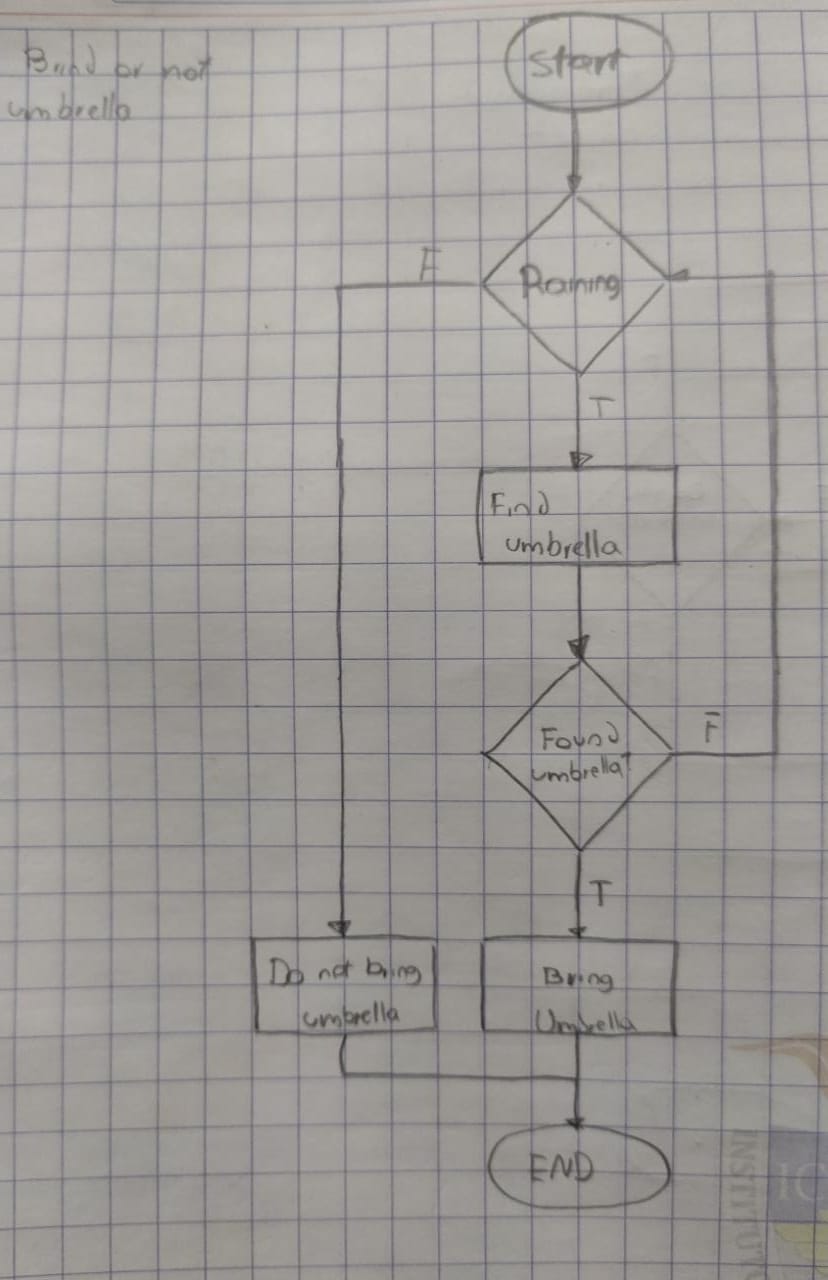 or not
umbrella
Start
F
Raining
T
Find
umbrella
Found
umbrella?
F
T
Do not bring
umbrella
Bring
Umbrella
END
INSTITUTO
IC